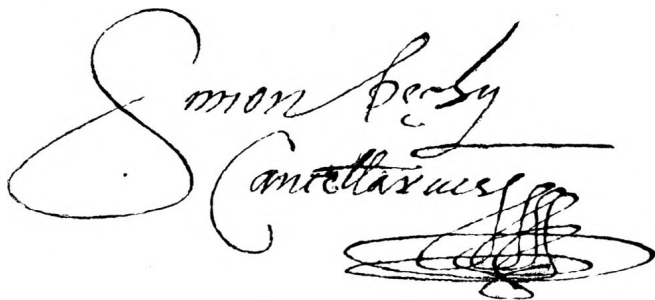 Simon Pechy
Cancellarius